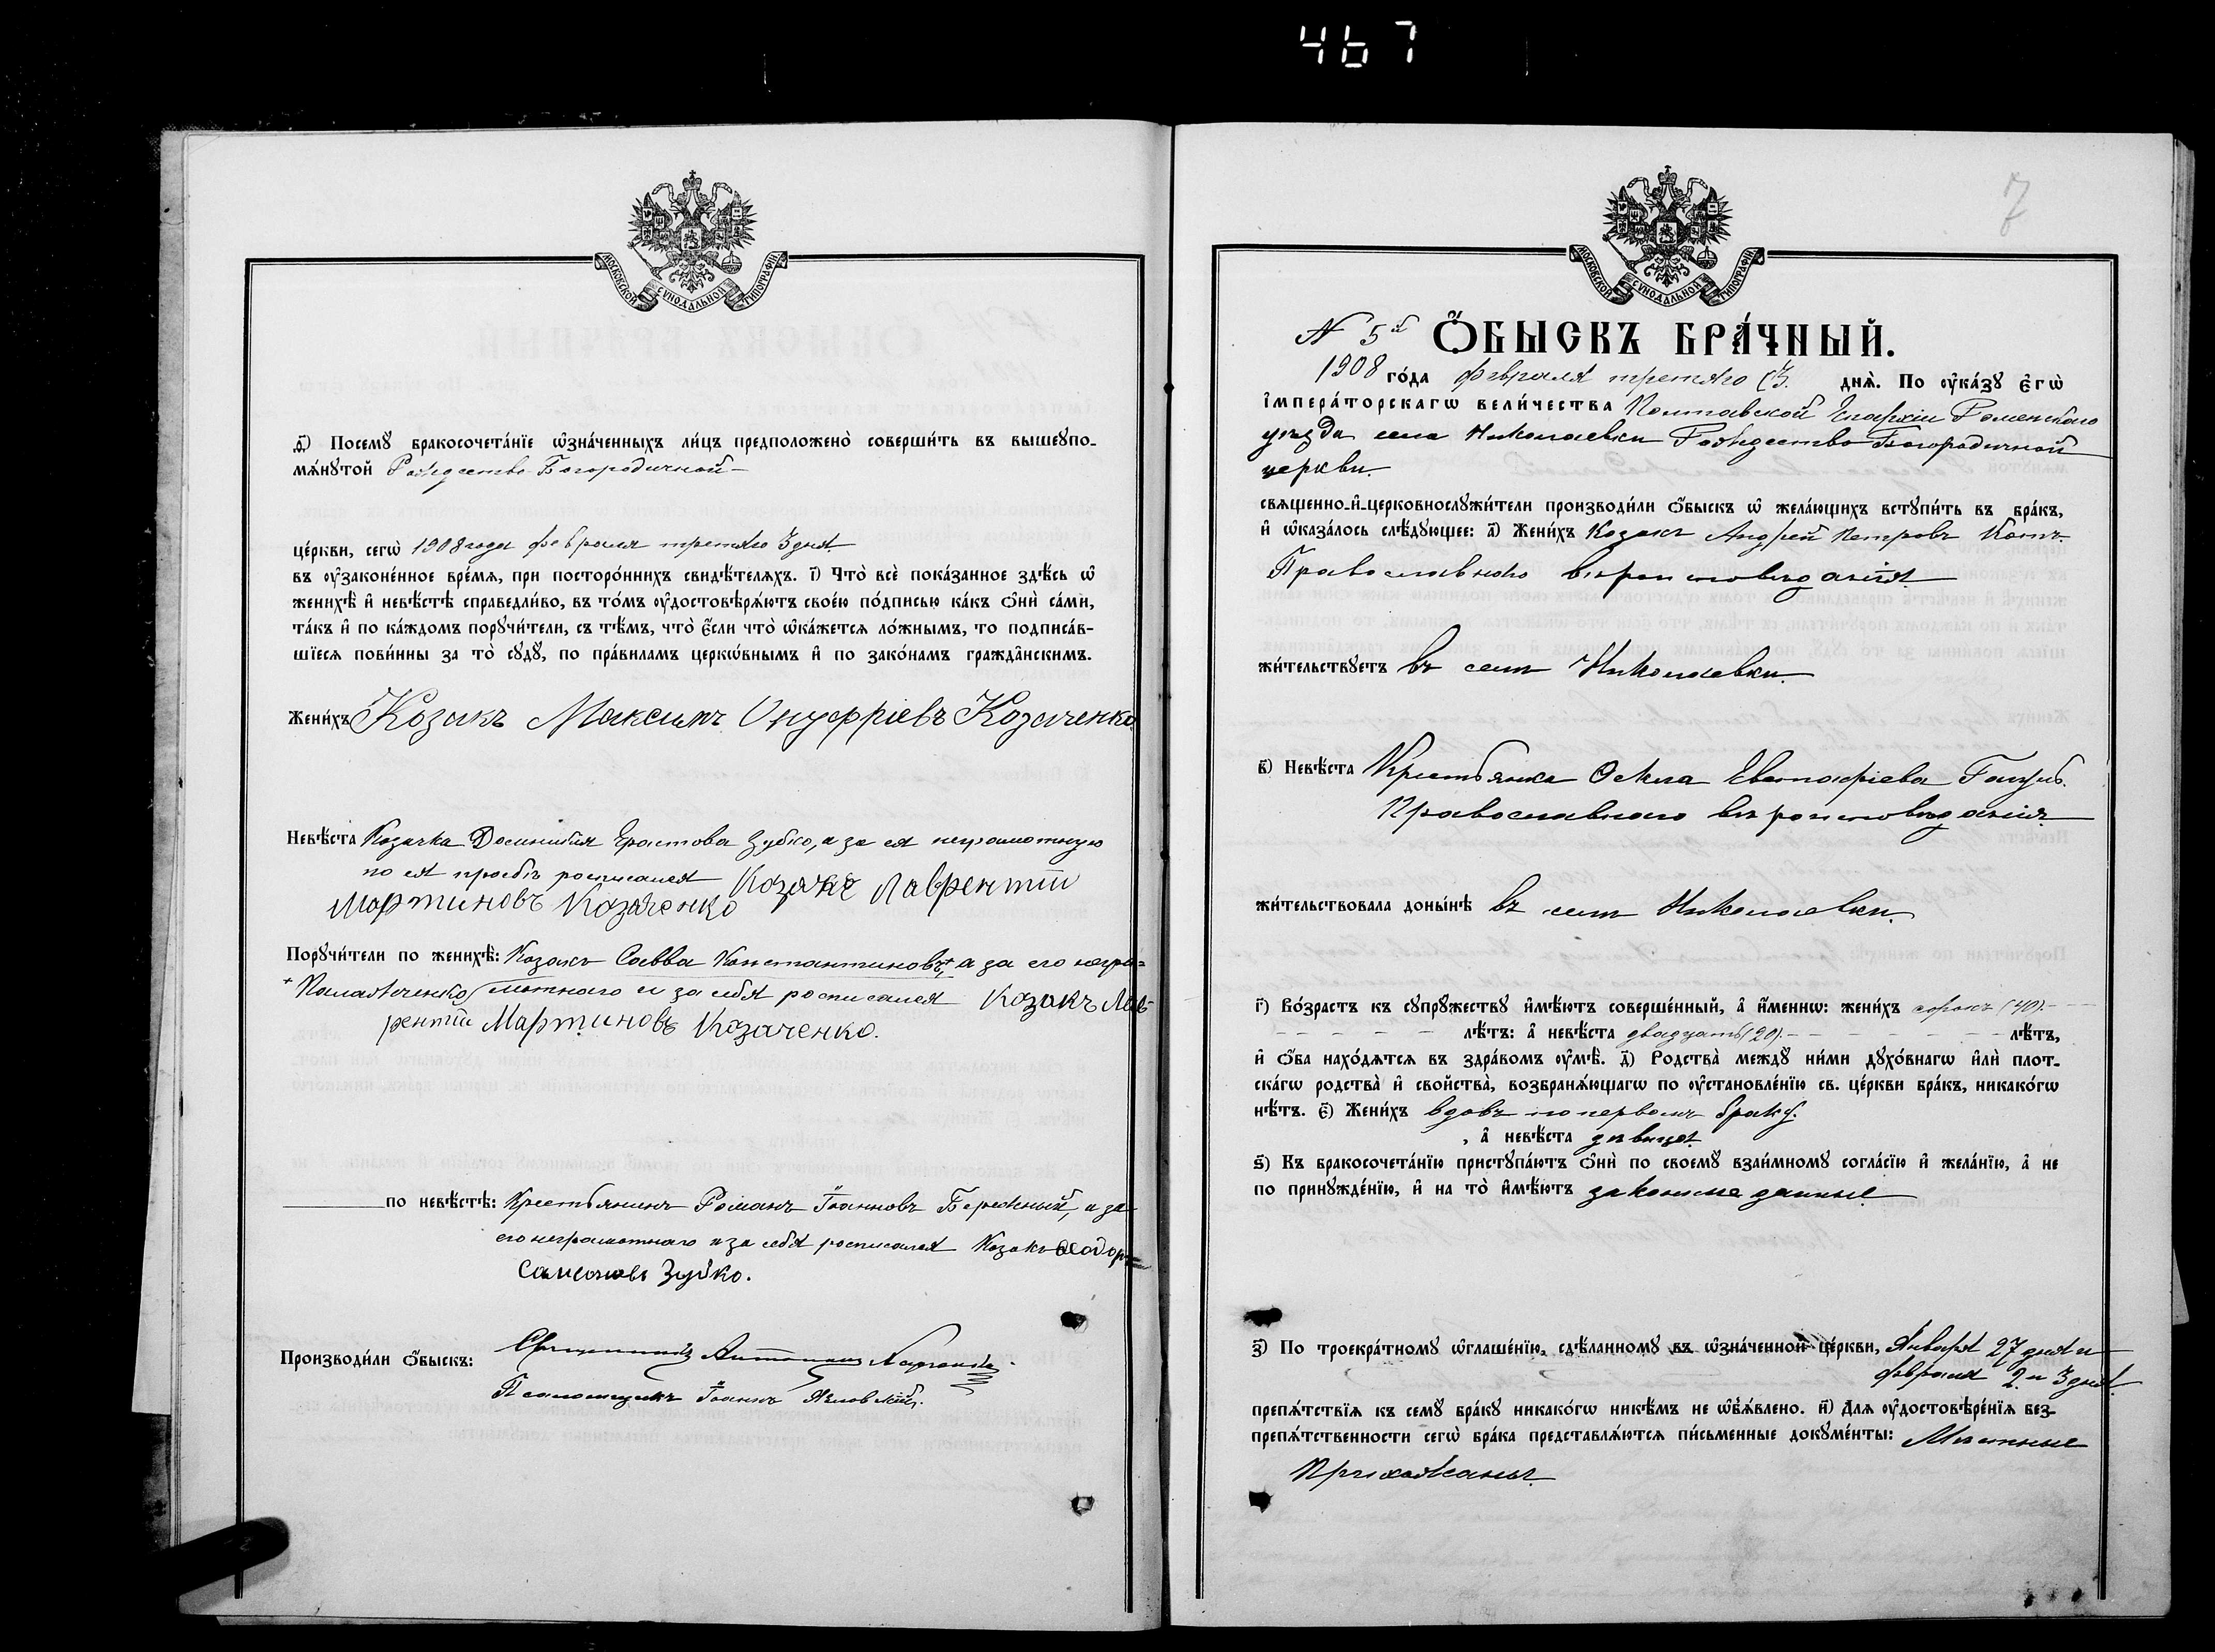 467
МОСКОВСКОЙ СУНОДАЛЬНОЙ ТИПОГРАФІИ
Ѳ҃) Посемꙋ бракосочета́нїе ѡ҆зна́ченныхъ ли́цъ предположено̀ соверши́ть въ вышеꙋпо-
мѧ́нꙋтой Рождество-Богородичной
це́ркви, сегѡ̀ 1908 года февраля третяго 3 дня
въ ᲂу҆законе́нное вре́мѧ, при посторо́ннихъ свидѣ́телѧхъ. і҃) Что̀ всѐ пока́занное здѣ́сь ѡ҆
женихѣ̀ и҆ невѣ́стѣ справедли́во, въ то́мъ ᲂу҆достовѣрѧ́ютъ свое́ю по́дписью ка́къ ѻ҆нѝ са́ми,
та́къ и҆ по ка́ждомъ порꙋчи́тели, съ тѣ́мъ, что̀ є҆́сли что̀ ѡ҆ка́жетсѧ ло́жнымъ, то подписа́в-
шїесѧ пови́нны за то̀ сꙋдꙋ̀, по пра́виламъ церкѡ́внымъ и҆ по зако́намъ гражда́нскимъ.
Жени́хъ Козакъ Максимъ Онуфріевъ Козаченко
Невѣ́ста Козачка Домникія Ерастова Зубко, а за ея неграмотную
по ея просьбѣ росписался Козакъ Лаврентій
Мартиновъ Козаченко
Порꙋчи́тели по женихѣ̀: Козакъ Савва Константиновъ,+ а за его негра=
+ Калаятченко мотнаго и за себя росписался Козакъ Лав-
рентій Мартиновъ Козаченко.
по невѣ́стѣ: Крестьянинъ Романъ Іоанновъ Бережный, а за
его неграмотнаго и за себя росписался Козакъ Ѳеодоръ
Самсоновъ Зубко.
Производи́ли ѻ҆́быскъ: Священникъ Антоній
Псаломщикъ Іоаннъ
7
МОСКОВСКОЙ СУНОДАЛЬНОЙ ТИПОГРАФІИ
N 5й Ѻ҆́БЫСКЪ БРА́ЧНЫЙ.
1908 го́да февраля третяго (3. днѧ̀. По ᲂу҆ка́зꙋ є҆гѡ̀
і҆мпера́торскагѡ вели́чества Полтавской Епархіи Роменскаго
уѣзда села Николаевки Рождество-Богородичной
церкви
свѧщенно-и҆-церковнослꙋжи́тели производи́ли ѻ҆́быскъ ѡ҆ жела́ющихъ встꙋпи́ть въ бра́къ,
и҆ ѡ҆каза́лось слѣ́дꙋющее: а҃) Жени́хъ Козакъ Андрей Петровъ Котъ.
Православнаго вѣроисповѣданія
жи́тельствꙋетъ въ селѣ Николаевки.
в҃) Невѣ́ста Крестьянка Ѳекла Евстафіева
Православнаго вѣроисповѣданія
жи́тельствовала доны́нѣ въ селѣ Николаевки.
г҃) Во́зрастъ къ сꙋпрꙋ́жествꙋ и҆мѣ́ютъ соверше́нный, а҆ и҆́меннѡ: жени́хъ сорокъ (40).
лѣ́тъ: а҆ невѣ́ста двадцать (20). лѣ́тъ,
и҆ ѻ҆́ба нахо́дѧтсѧ въ здра́вомъ ᲂу҆мѣ̀. д҃) Родства̀ междꙋ̀ ни́ми дꙋхо́внагѡ и҆лѝ плот-
ска́гѡ родства̀ и҆ свойства̀, возбранѧ́ющагѡ по ᲂу҆становле́нїю св. це́ркви бра́къ, никако́гѡ
нѣ́тъ. є҃) Жени́хъ вдовъ по первомъ браку.
, а҆ невѣ́ста дѣвица
ѕ҃) Къ бракосочета́нїю пристꙋпа́ютъ ѻ҆нѝ по своемꙋ̀ взаи́мномꙋ согла́сїю и҆ жела́нїю, а҆ не
по принꙋжде́нїю, и҆ на то̀ и҆мѣ́ютъ законные данные
з҃) По троекра́тномꙋ ѡ҆глаше́нїю, сдѣ́ланномꙋ въ ѡ҆зна́ченной це́ркви, Января 27 дня и
февраля 2 и 3 дня.
препѧ́тствїѧ къ семꙋ̀ бра́кꙋ никако́гѡ никѣ́мъ не ѡ҆б̾ѧ́влено. и҃) Длѧ ᲂу҆достовѣре́нїѧ без-
препѧ́тственности сегѡ̀ бра́ка представлѧ́ютсѧ пи́сьменные докꙋме́нты: Мѣстные
Прихожаны.